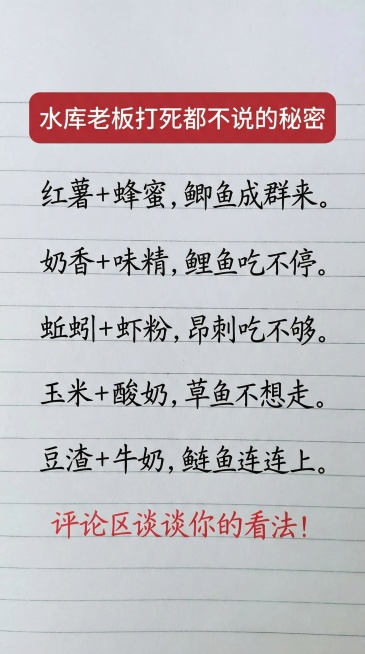 水库老板打死都不说的秘密
红薯+蜂蜜,鲫鱼成群来。
奶香+味精,鲤鱼吃不停。
蚯蚓+虾粉,昂刺吃不够。
玉米+酸奶,草鱼不想走。
豆渣+牛奶,鲢鱼连连上。
评论区谈谈你的看法!